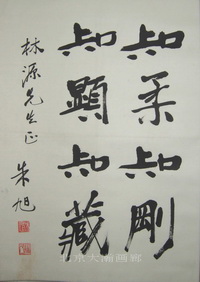 知柔知剛
知顯知藏
林源先生正
朱旭